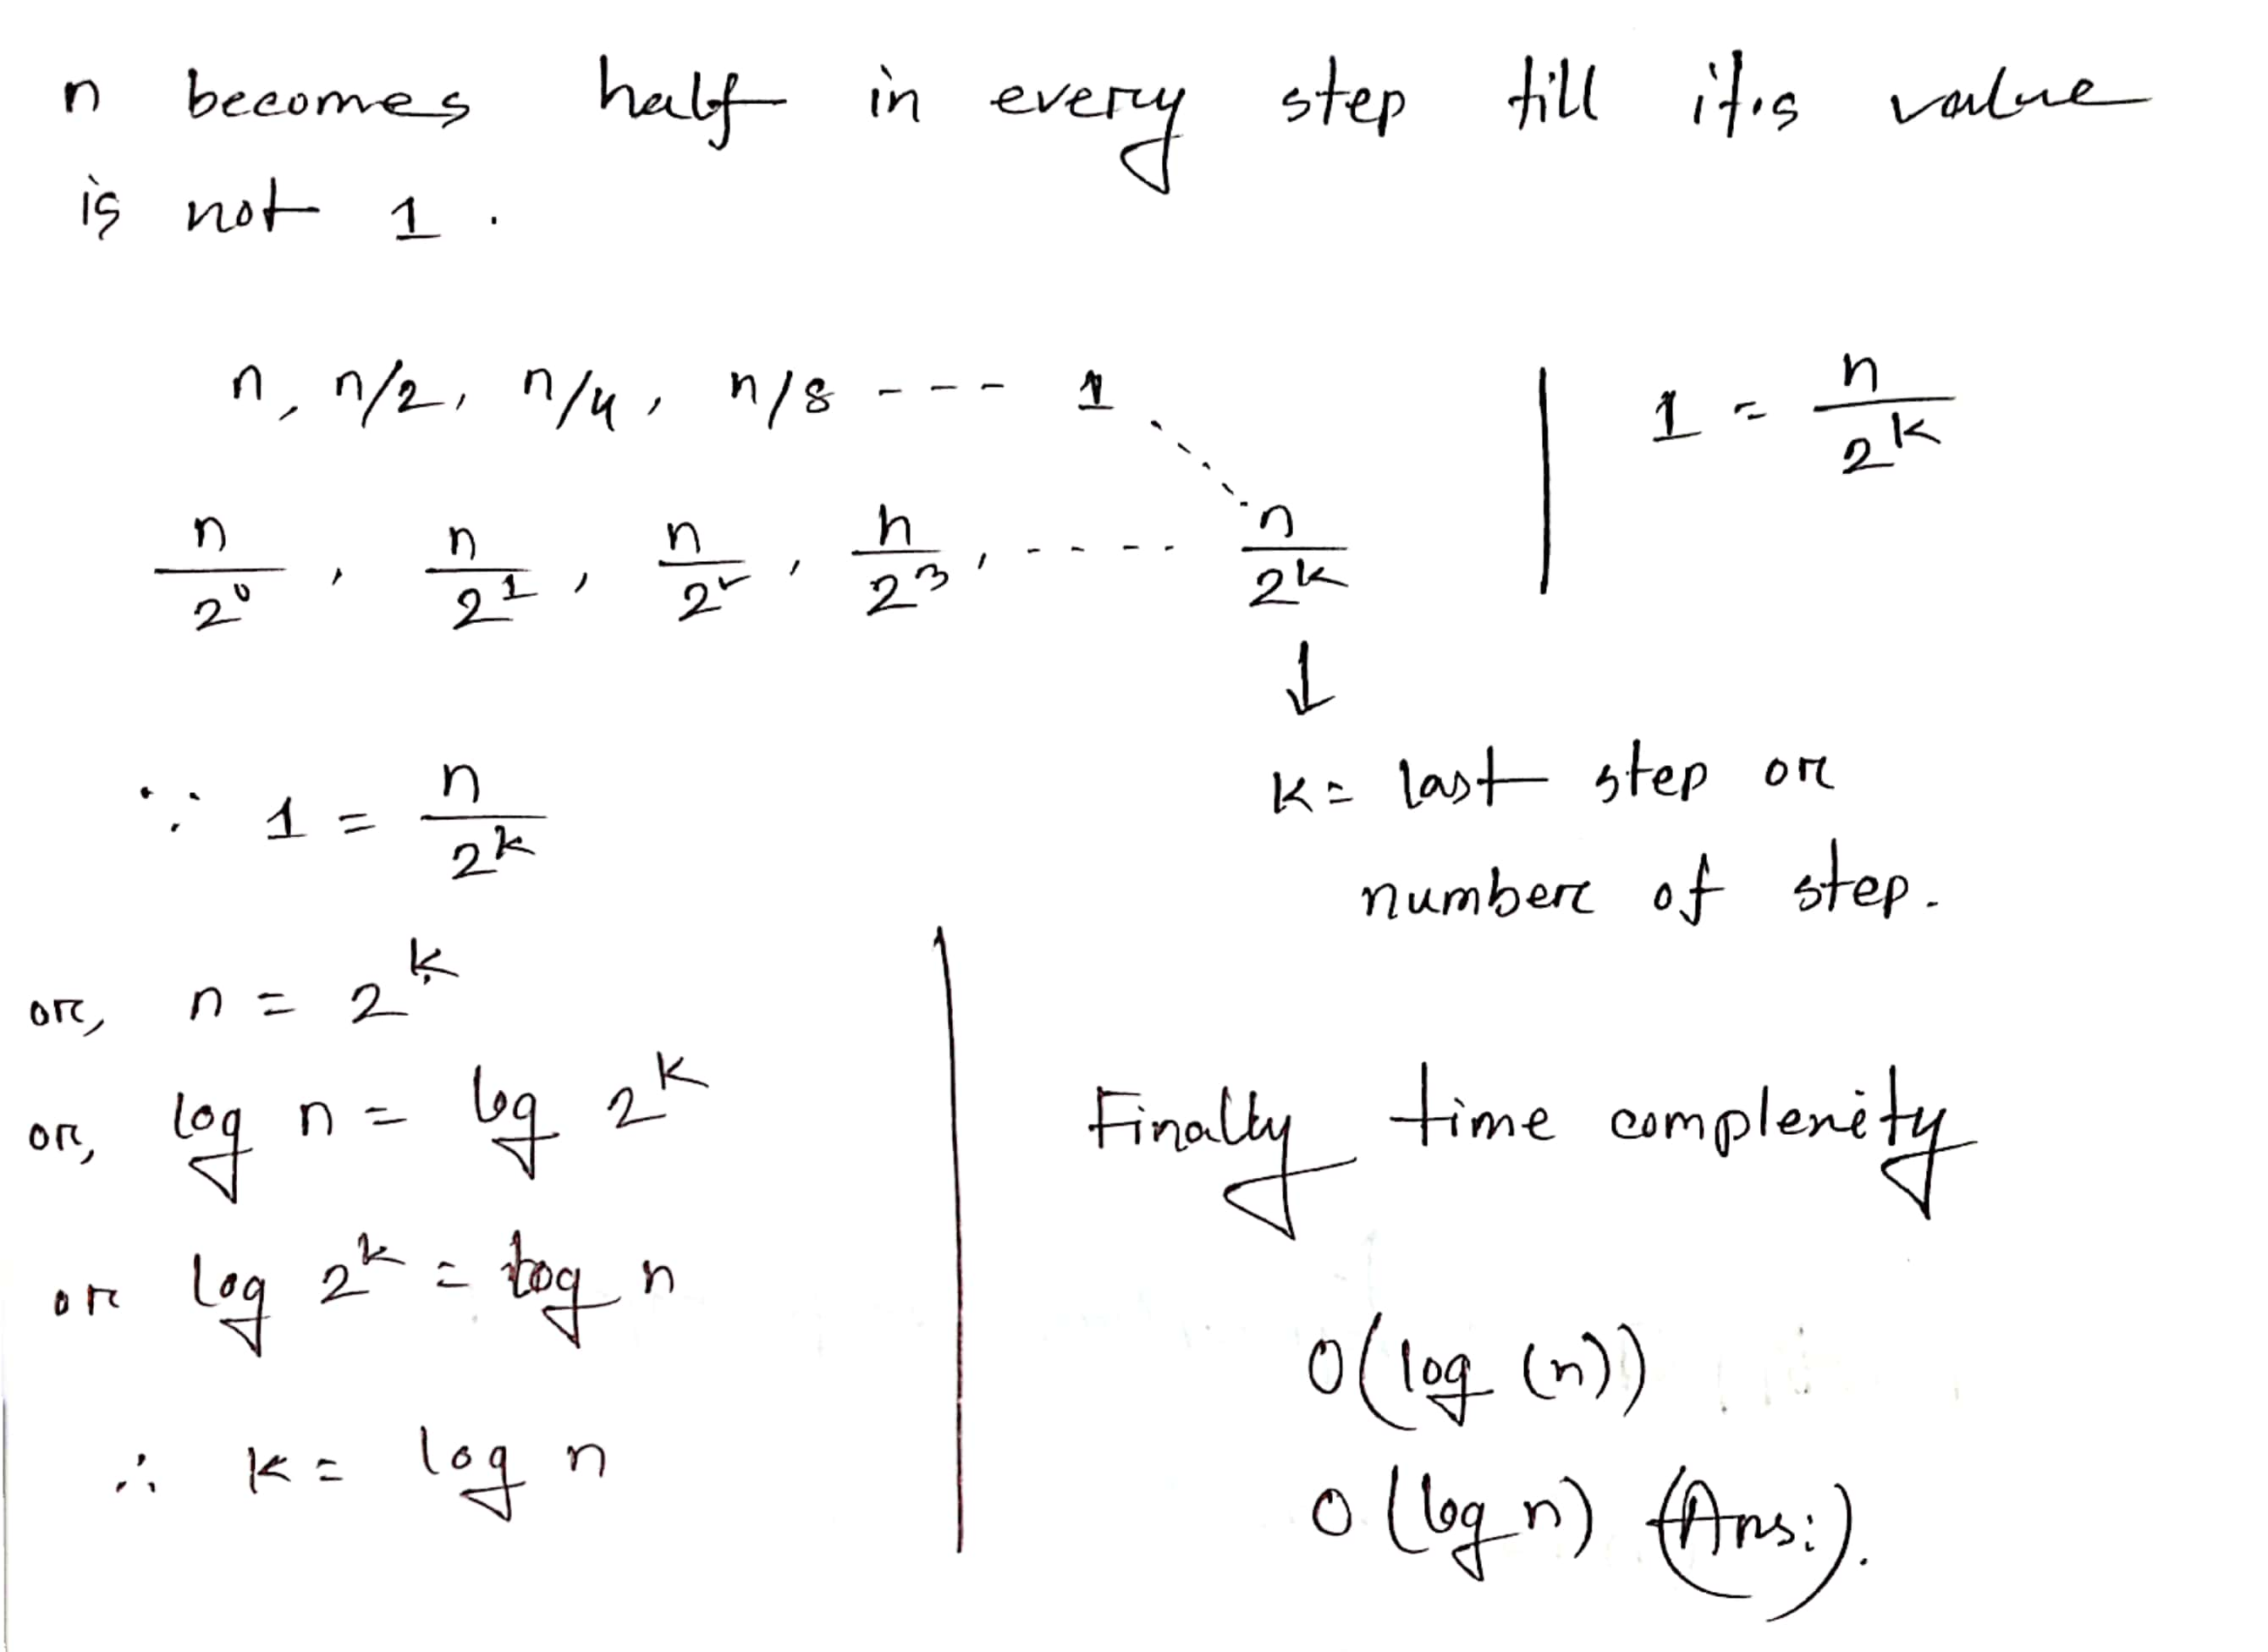 n becomes half in every step till it's value
is not 1.
n, n/2, n/4, n/8 --- 1
1 = n/2^k
n/2^0, n/2^1, n/2^2, n/2^3, ----- n/2^k
↓
k = last step or
number of step.
∵ 1 = n/2^k
or, n = 2^k
or, log n = log 2^k
or log 2^k = log n
∴ k = log n
Finally time complexity
O(log (n))
O(log n) (Ans:).